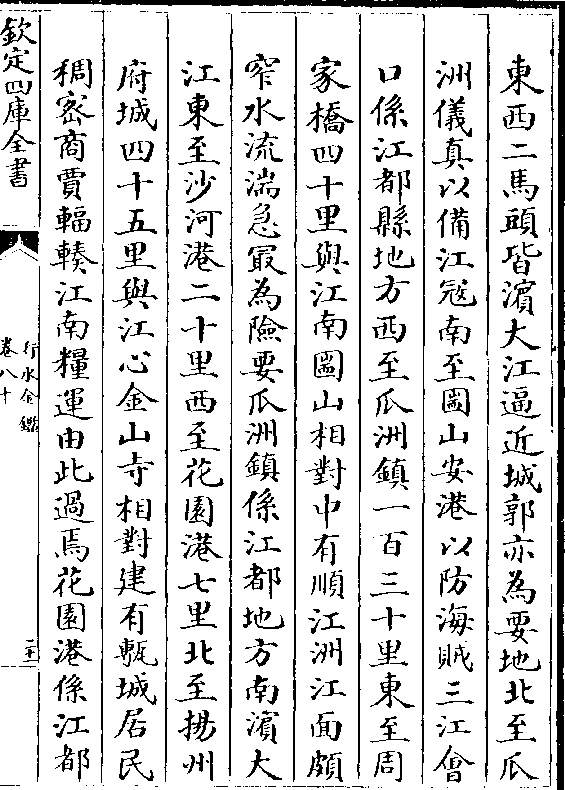 東西二馬頭皆濵大江逼近城郭亦為要地北至瓜
洲儀真以備江冦南至圌山安港以防海賊三江會
口係江都縣地方西至瓜洲鎮一百三十里東至周
家橋四十里與江南圌山相對中有順江洲江面頗
窄水流湍急冣為險要瓜洲鎮係江都地方南濵大
江東至沙河港二十里西至花園港七里北至揚州
府城四十五里與江心金山寺相對建有甎城居民
稠宻商賈輻輳江南糧運由此過焉花園港係江都
欽定四庫全書
行水金鑑
卷八十